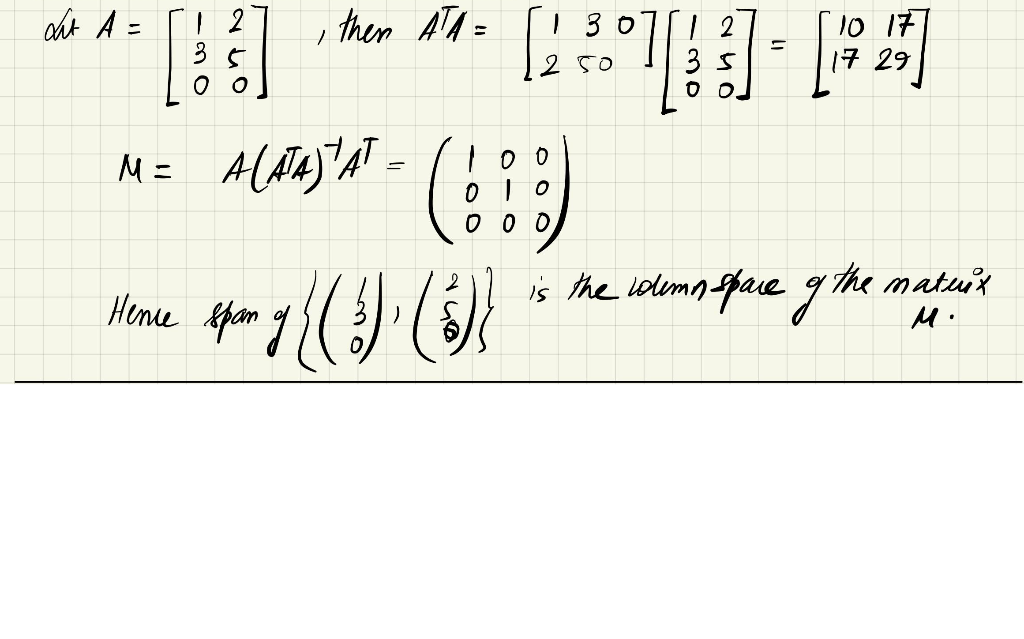 Let A = [1 2; 3 5; 0 0], then AᵀA = [1 3 0; 2 5 0] [1 2; 3 5; 0 0] = [10 17; 17 29]
M = A(AᵀA)⁻¹Aᵀ = (1 0 0; 0 1 0; 0 0 0)
Hence span of {(1; 3; 0), (2; 5; 0)} is the column space of the matrix M.